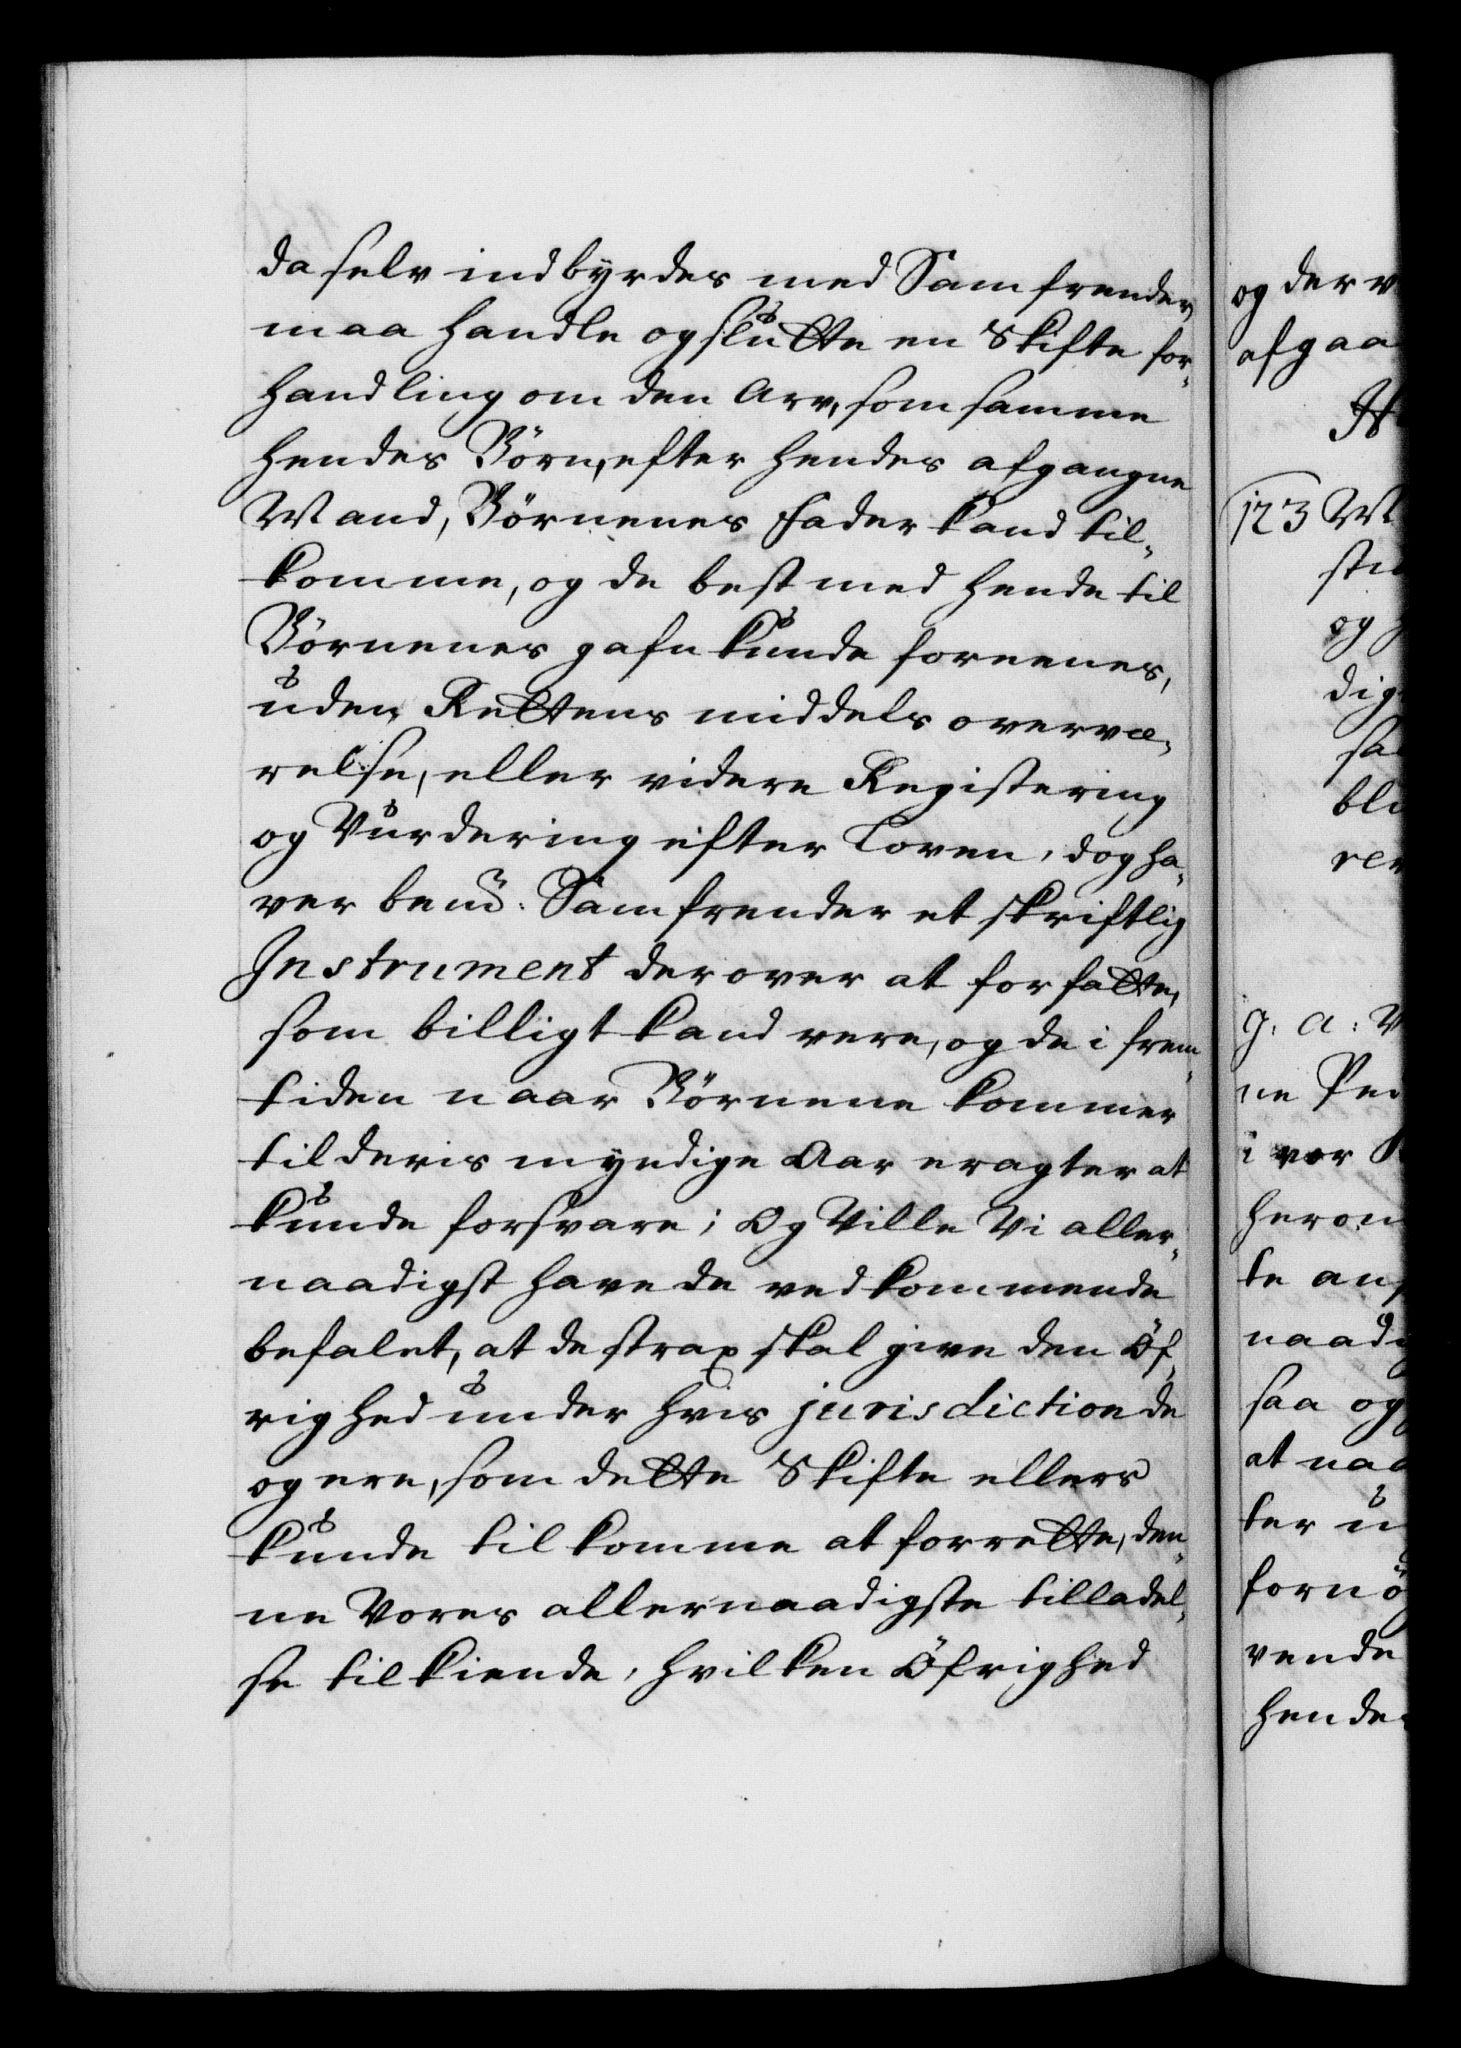 da selv indbyrdes med Samfrender,
maa handle og slutte en Skifte for-
handling om den Arv, som samme
hendes Börn, efter hendes afgangne
Mand, Börnenes Fader kand til-
komme, og de best med hende til
Börnenes gafn kunde foreenes,
uden Rettens middels overvæ-
relse, eller videre Registering
og Vurdering efter Loven, dog ha-
ver bemt: Samfrender et skriftlig
Instrument derover at forfatte,
som billigt kand være, og de i frem-
tiden naar Börnene kommer
til deris myndige Aar eragter at
kunde forsvare; Og Ville Vi aller-
naadigst have de vedkommende
befalet, at de strax skal give den Öf-
righed under hvis jurisdiction de
og ere, som dette Skifte ellers
kunde tilkomme at forrette, den-
ne Vores allernaadigste tilladel-
se tilkiende, hvilken Öfrighed
og der v
afgaa
123 M
sti
og
dig
sal
bli
rer
g: a: V
ne Ped
i vor
herom
te an
naadi
saa og
at naa
ter u
fornö
vende
hende